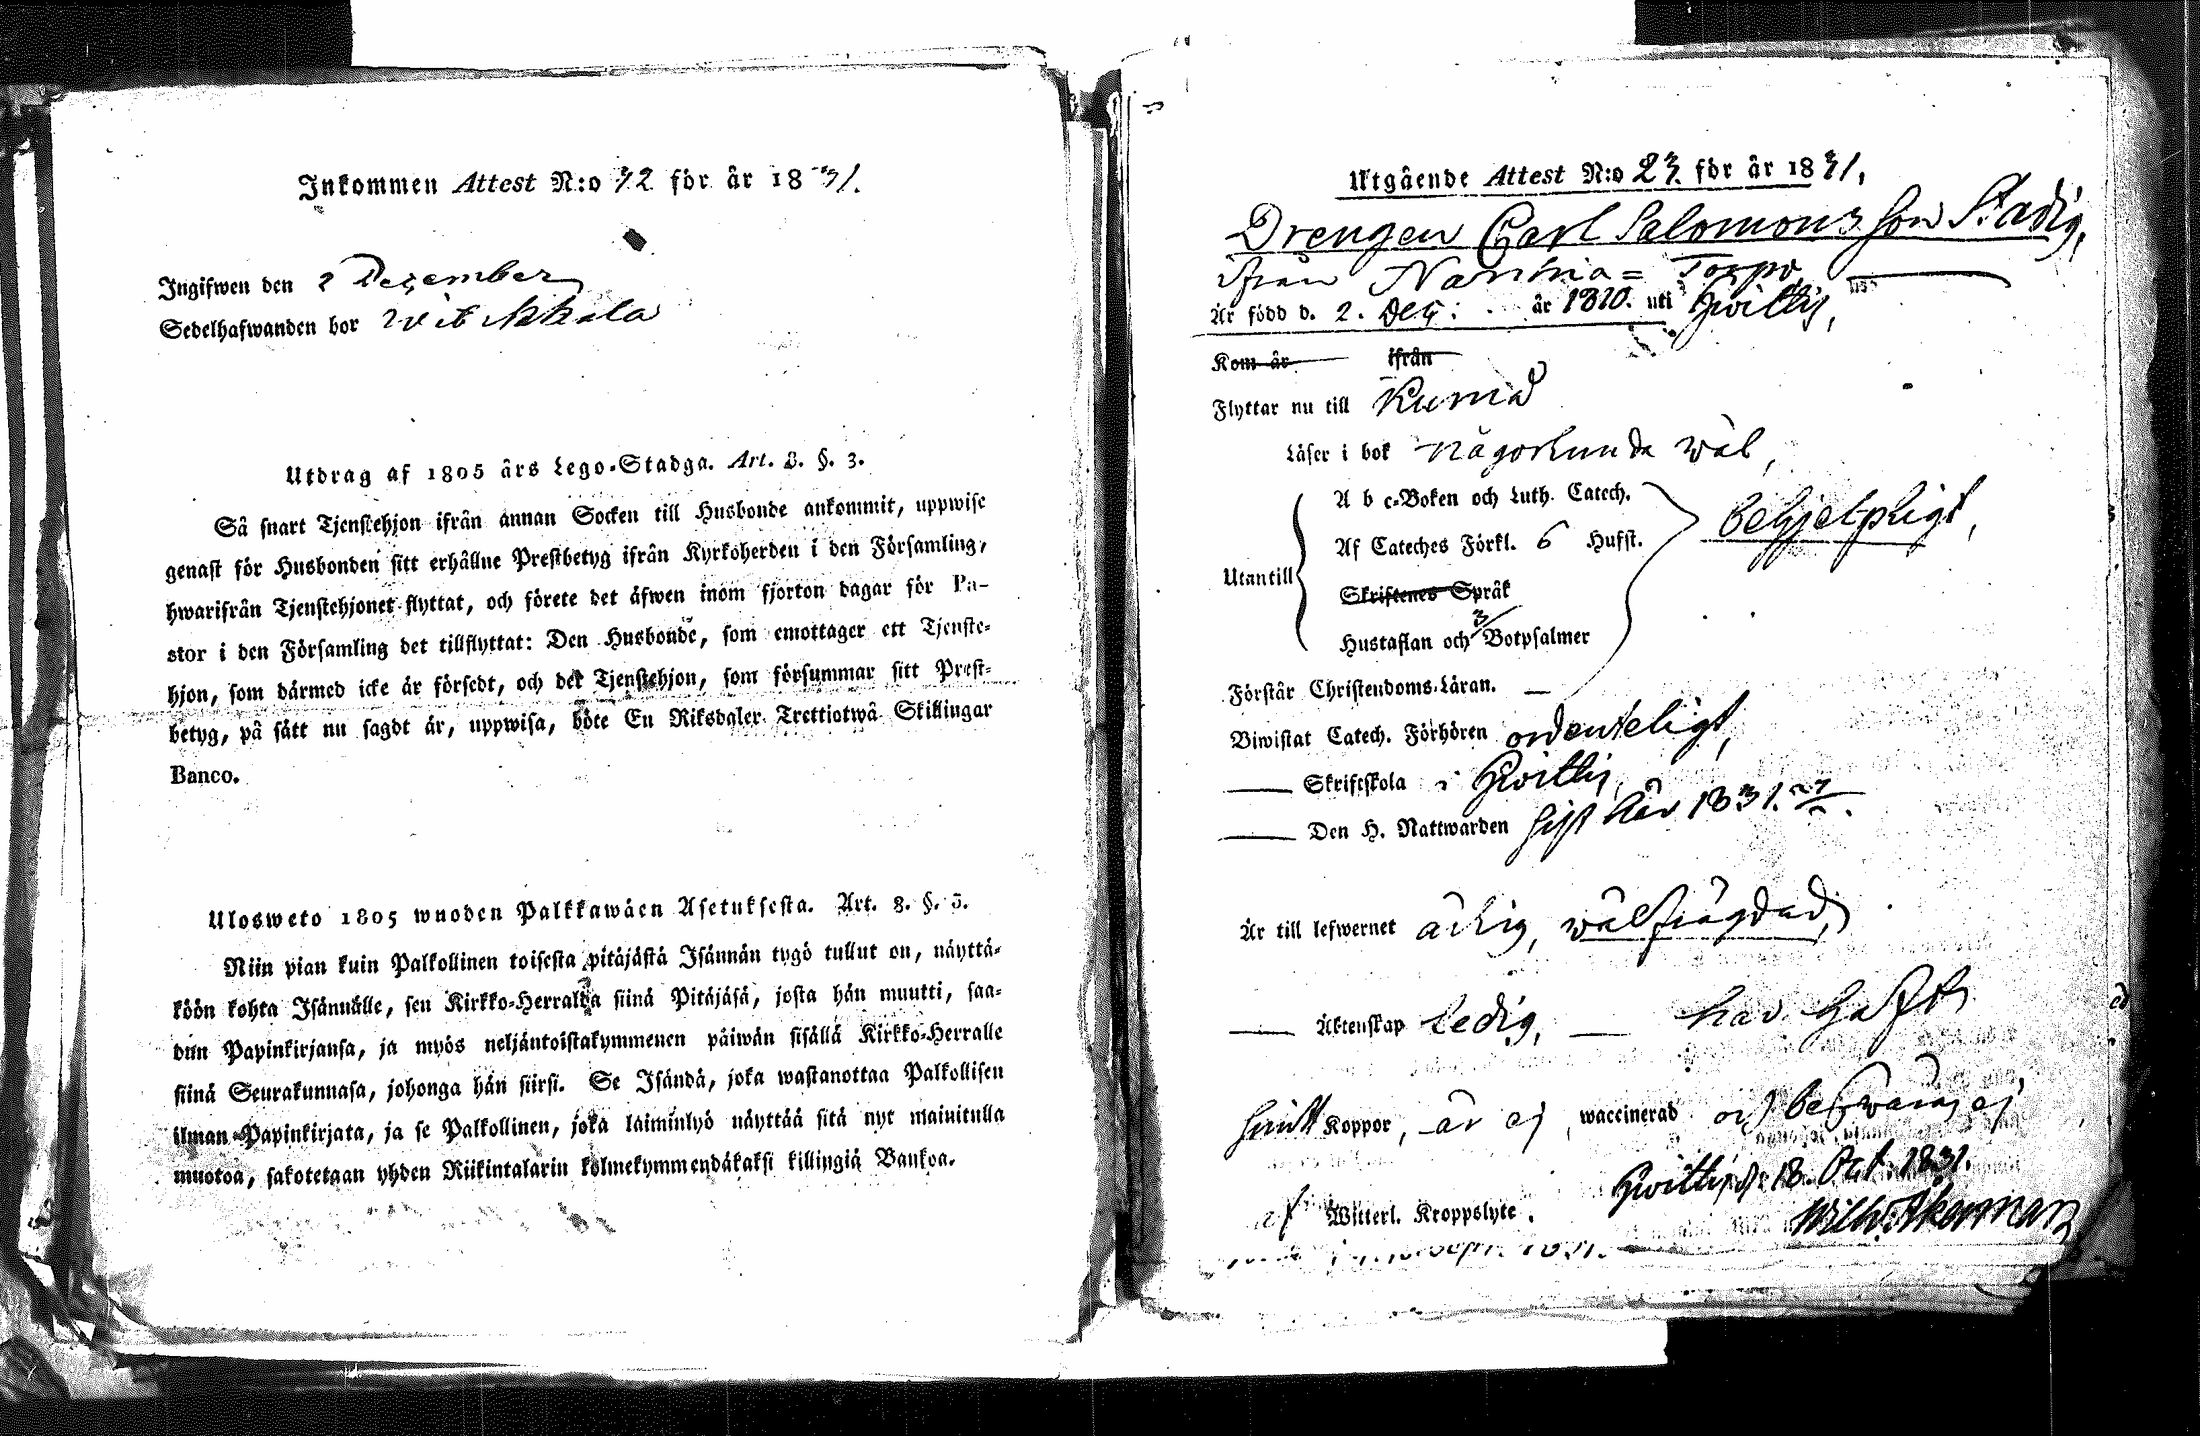 Inkommen Attest N:o 72 för år 1831.
Ingifwen den 2 December
Sedelhafwanden bor
Utdrag af 1805 års Lego-Stadga. Art. 8. §. 3.
Så snart Tjenstehjon ifrån annan Socken till Husbonde ankommit, uppwise
genast för Husbonden sitt erhållne Prestbetyg ifrån Kyrkoherden i den Församling,
hwarifrån Tjenstehjonet flyttat, och förete det äfwen inom fjorton dagar för Pa-
stor i den Församling det tillflyttat: Den Husbonde, som emottager ett Tjenste-
hjon, som därmed icke är försedt, och det Tjenstehjon, som försummar sitt Prest-
betyg, på sätt nu sagdt är, uppwisa, böte En Riksdaler Trettiotwå Skillingar
Banco.
Ulosweto 1805 wuoden Palkkawäen Asetuksesta. Art. 8. §. 3.
Niin pian kuin Palkollinen toisesta pitäjästä Isännän tygö tullut on, näyttä-
köön kohta Isännälle, sen Kirkko-Herralda siinä Pitäjäsä, josta hän muutti, saa-
dun Papinkirjansa, ja myös neljäntoistakymmenen päiwän sisällä Kirkko-Herralle
siinä Seurakunnasa, johonga hän siirsi. Se Isändä, joka wastanottaa Palkollisen
ilman Papinkirjata, ja se Palkollinen, joka laiminlyö näyttää sitä nyt mainitulla
muotoa, sakotetaan yhden Riikintalarin kolmekymmendäkaksi killingiä Bankoa.
Utgående Attest N:o 23. för år 1831.
Drengen Carl Salomons son Stadig,
ifrån Torpo,
Är född d. 2. Dec: år 1810. uti Hwittis,
Kom år ifrån
Flyttar nu till Kumo
Läser i bok någorlunda wäl,
A b c-Boken och Luth. Catech. behjelpligt,
Af Cateches Förkl. 6 Hufst.
Utantill
Skriftenes Språk
Hustaflan och 3/ Botpsalmer
Förstår Christendoms-Läran. —
Biwistat Catech. Förhören ordenteligt,
— Skriftskola i Hwittis,
— Den H. Nattwarden sist här 1831.
Är till lefwernet ärlig, wälfrägdad,
— Äktenskap ledig, — har haft
Koppor, är ej waccinerad och beswäras ej
af Witterl. Kroppslyte. Hwittis d. 18. Oct. 1831.
Wilh. Åkerman